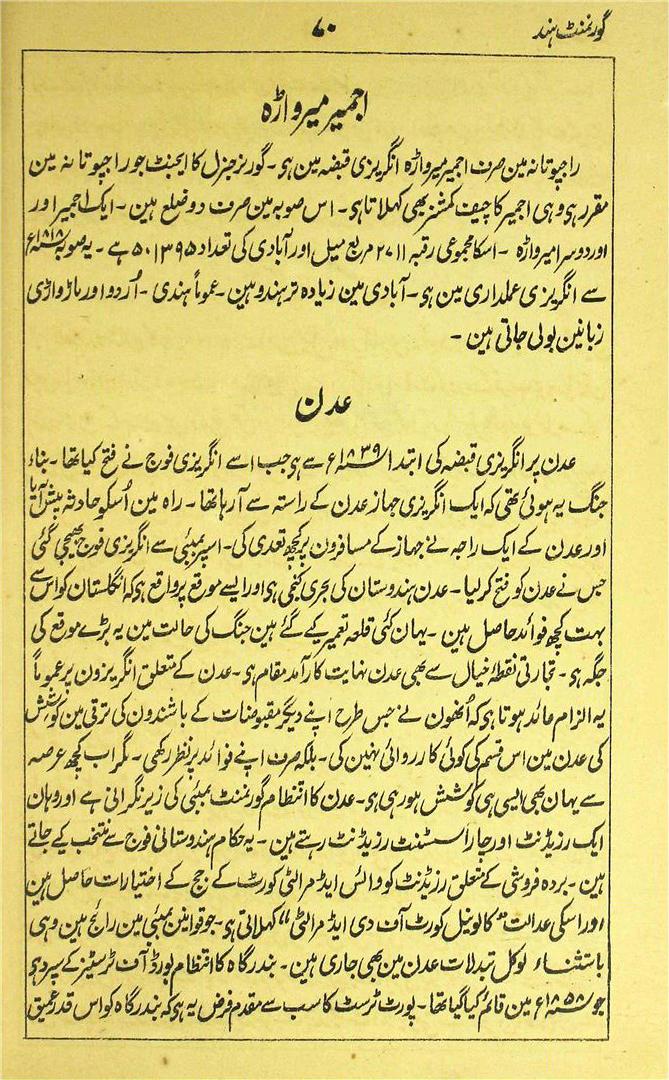 گورنمنٹ ہند
۸۰
اجمیر میرواڑہ
راجپوتانہ مین صرف اجمیر میرواڑہ انگریزی قبضہ مین ہی۔ گورنر جنرل کا ایجنٹ جو راجپوتانہ مین
مقرر ہی وہی اجمیر کا چیف کمشنر بھی کہلاتا ہی۔ اس صوبہ مین صرف دو ضلع ہین۔ ایک اجمیر اور
اور دوسرا میرواڑہ ۔ اسکا مجموعی رقبہ ۲۷۱۱ مربع میل اور آبادی کی تعداد ۵۰۱۳۹۵ ہے ۔ یہ صوبہ ۱۸۱۸ء
سے انگریزی عملداری مین ہی۔ آبادی مین زیادہ تر ہندو ہین۔ عموماً ہندی ۔ اُردو اور ماڑواڑی
زبانین بولی جاتی ہین ۔
عدن
عدن پر انگریزی قبضہ کی ابتدا ۱۸۳۹ء سے ہی جب اسے انگریزی فوج نے فتح کیا تھا ۔ بناء
جنگ یہ ہوئی تھی کہ ایک انگریزی جہاز عدن کے راستہ سے آرہا تھا ۔ راہ مین اُسکو حادثہ پیش آیا
اور عدن کے ایک راجہ نے جہاز کے مسافرون پر کچھ تعدی کی۔ اسپر بمبئی سے انگریزی فوج بھیجی گئی
جس نے عدن کو فتح کرلیا ۔ عدن ہندوستان کی بحری کنجی ہی اور ایسے موقع پر واقع ہی کہ انگلستان کو اس سے
بہت کچھ فوائد حاصل ہین ۔ یہان کئی قلعہ تعمیر کیے گئے ہین جنگ کی حالت مین یہ بڑے موقع کی
جگہ ہی۔ تجارتی نقطۂ خیال سے بھی عدن نہایت کارآمد مقام ہی۔ عدن کے متعلق انگریزون پر عموماً
یہ الزام عائد ہوتا ہی کہ اُنھون نے جس طرح اپنے دیگر مقبوضات کے باشندون کی ترقی مین کوشش
کی عدن مین اس قسم کی کوئی کارروائی نہین کی۔ بلکہ صرف اپنے فوائد پر نظر رکھی۔ مگر اب کچھ عرصہ
سے یہان بھی ایسی ہی کوشش ہورہی ہی۔ عدن کا انتظام گورنمنٹ بمبئی کی زیر نگرانی ہے اور وہان
ایک رزیڈنٹ اور چار اسسٹنٹ رزیڈنٹ رہتے ہین ۔ یہ حکام ہندوستانی فوج سے منتخب کیے جاتے
ہین ۔ بردہ فروشی کے متعلق رزیڈنٹ کو وائس ایڈمرالٹی کورٹ کے جج کے اختیارات حاصل ہین
اور اسکی عدالت "کالونیل کورٹ آف دی ایڈمرالٹی" کہلاتی ہی۔ جو قوانین بمبئی مین رائج ہین وہی
باستثناء لوکل تبدلات عدن مین بھی جاری ہین ۔ بندرگاہ کا انتظام بورڈ آف ٹرسٹیز کے سپرد ہی
جو ۱۸۵۸ء مین قائم کیا گیا تھا ۔ پورٹ ٹرسٹ کا سب سے مقدم فرض یہ ہی کہ بندرگاہ کو اس قدر عمیق